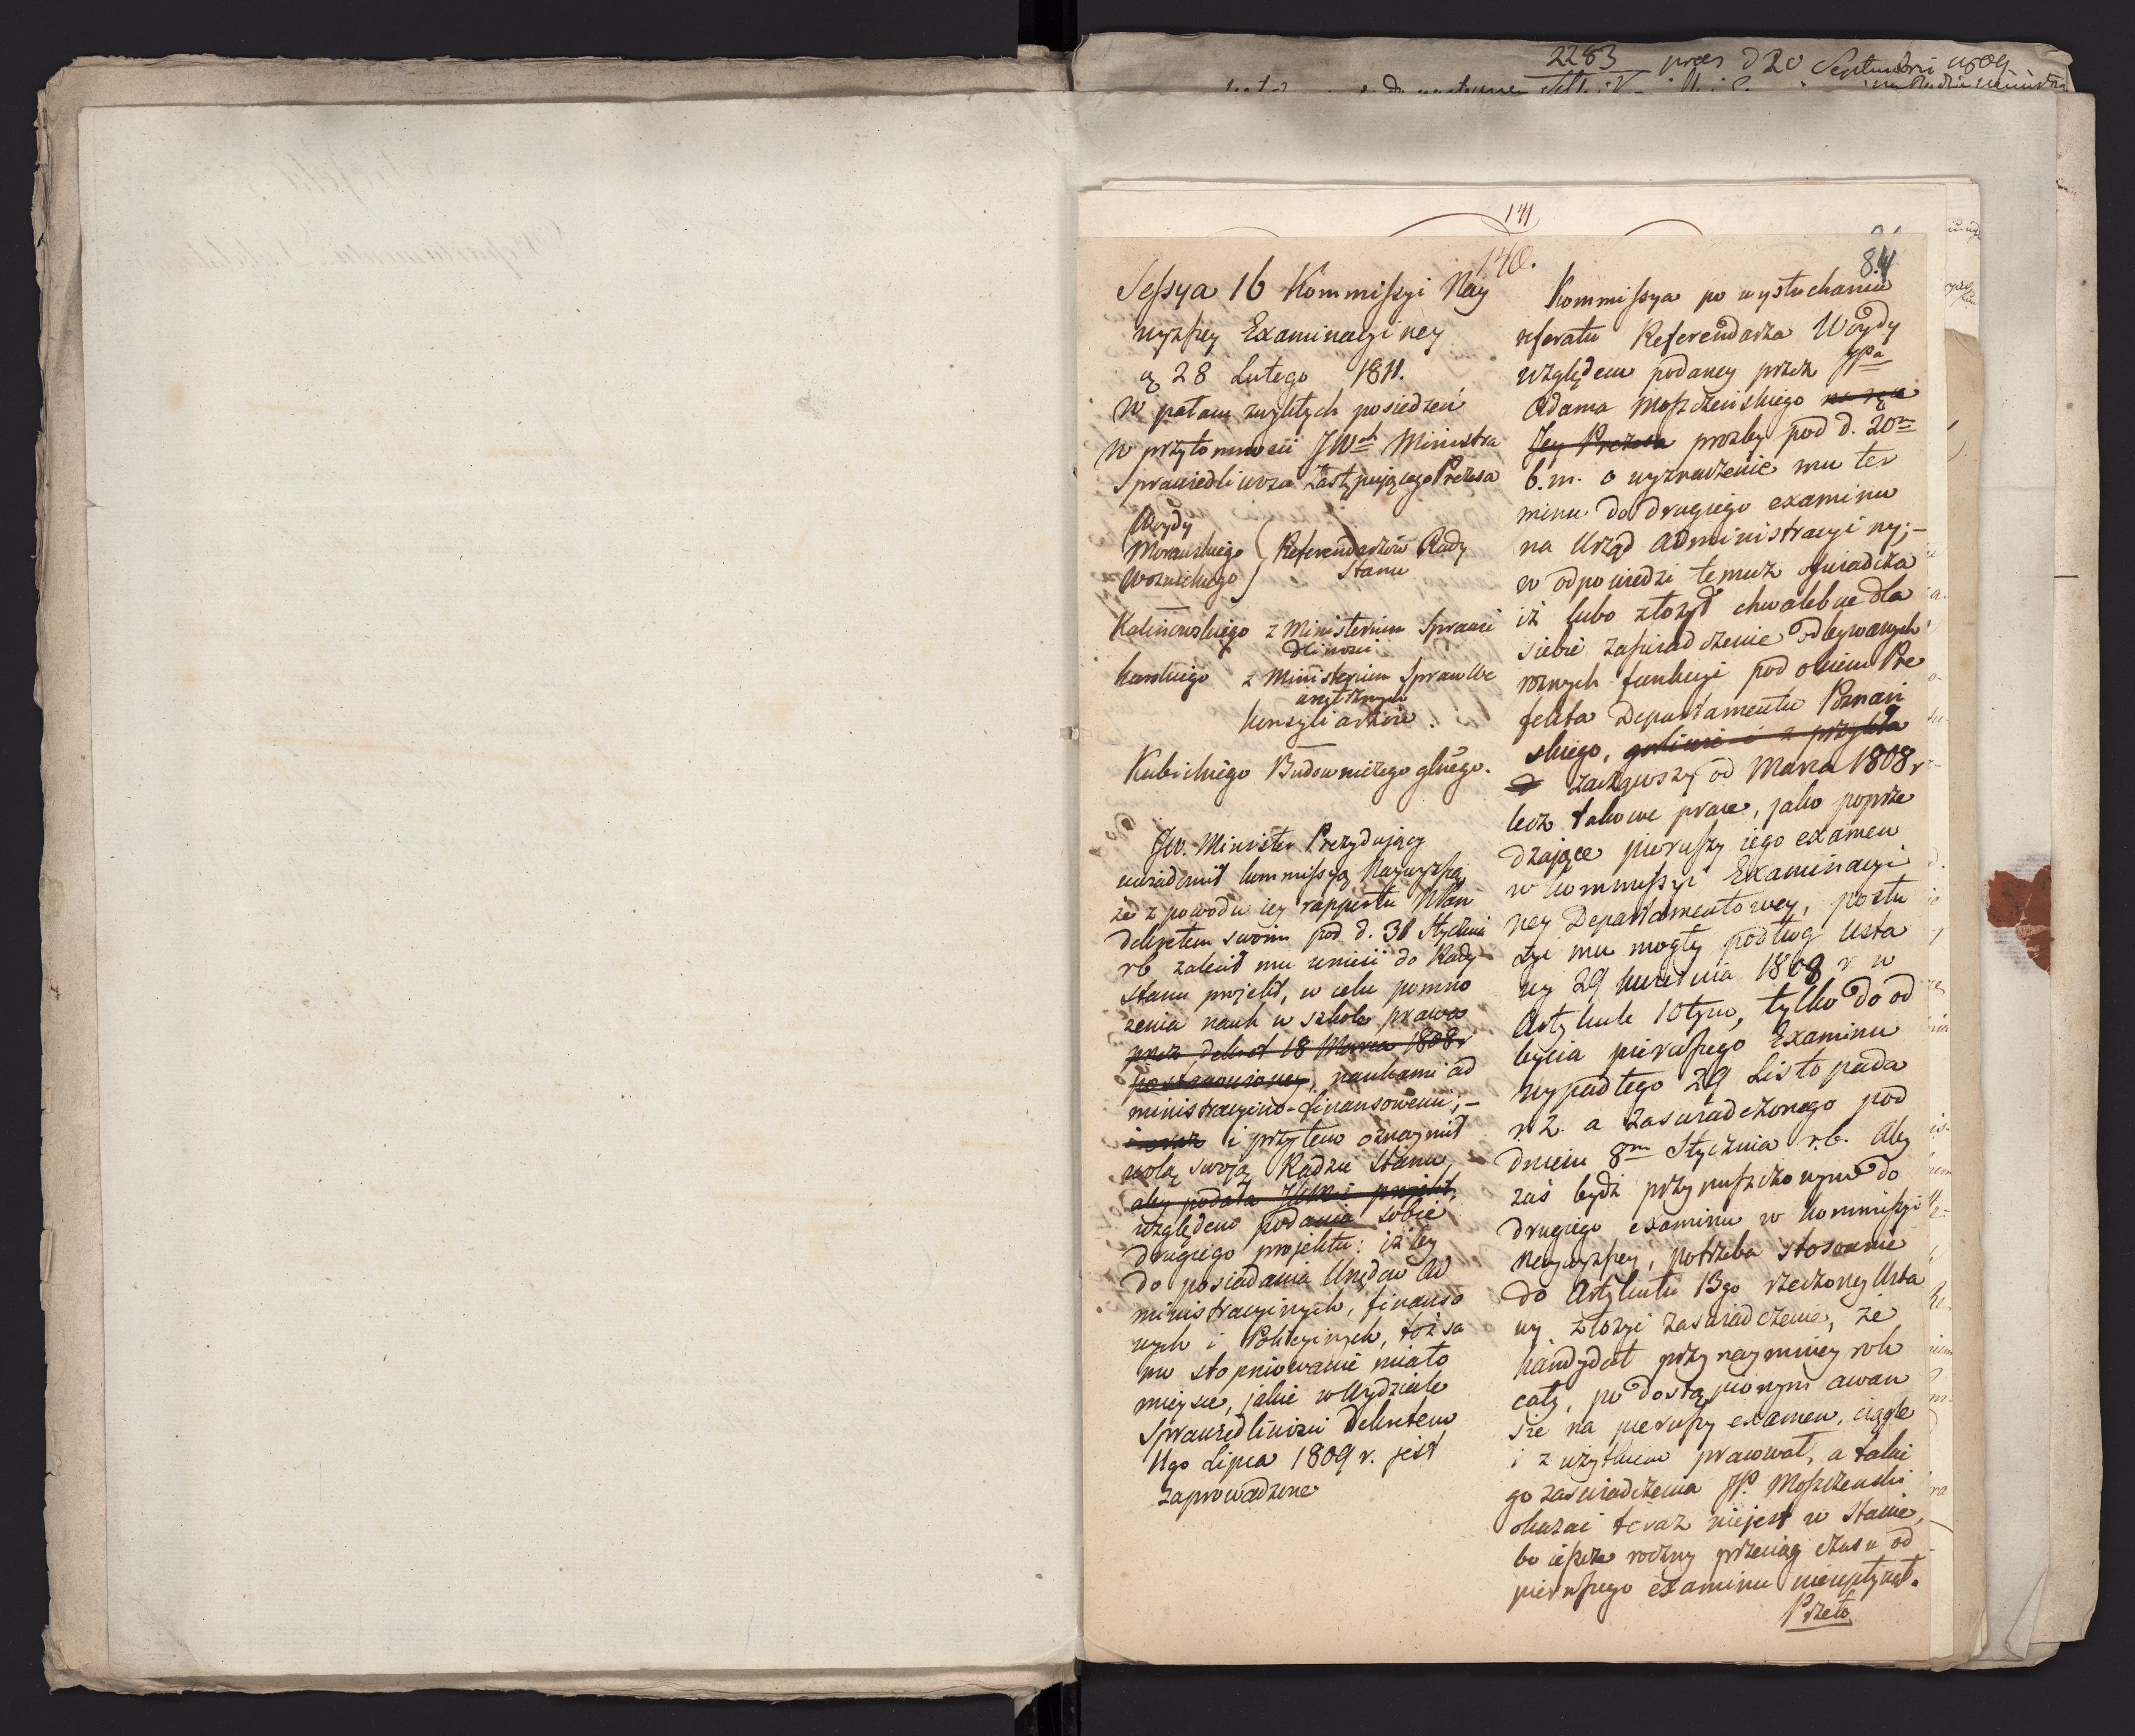 2283 præs d 20 Septembris 1809
141
140.
84
Sessya 16 Kommissyi Nay
wyzszey Examinacyiney
28 Lutego 1811.
W pałacu zwykłych posiedzeń
w przytomności JWch Ministra
Sprawiedliwośa Zastępuiącego Prezesa
Woydy
Morawskiego } Referendarzów Rady
Woznickiego Stanu
Kalinowskiego z Ministerium Sprawie
dliwości
Karskiego z Ministerium Spraw We
wnętrznych
Konsyliarzów.
Kubickiego Budowniczego głnego.
JW. Minister Prezyduiący
uwiadomił kommissyą Naywyzszą
że z powodu iey rapportu NPan
dekretem swoim pod d. 31 Stycznia
rb zalecił mu wnieść do Rady
Stanu projekt, w celu pomno
żenia nauk w szkole prawa
przez dekret 18 Marca 1808 r
postanowioney, naukami ad
ministracyino-finansowemi; –
i oraz i przytem oznaymił
wolą swoją Radzie Stanu,
aby podała projekt,
względem podania sobie
drugiego projektu: iż by
do posiadania Urzędów Ad
ministracyinych, finanso
wych i Policyinych, toż sa
mo stopniowanie miało
mieysce, jakie w Wydziale
Sprawiedliwości Dekretem
11go Lipca 1809 r. jest
zaprowadzone
Kommissya po wysłuchaniu
referatu Referendarza Woydy
względem podaney przez JPa
Adama Moszczeńskiego na ręce
Jey Prezesa prozby pod d. 20m
b.m. o wyznaczenie mu ter
minu do drugiego examinu
na Urząd administracyiny; –
w odpowiedzi temuż oświadcza
iż lubo złożył chwalebne dla
siebie zaświadczenie odbywanych
rożnych funkcyi pod okiem Pre
fekta Departamentu Poznań
skiego, gorliwie i z przykła
zacząwszy od Marca 1808 r
lecz takowe prace, jako poprze
dzające pierwszy iego examen
w kommissyi Examinacyi
ney Departamentowey, posłu
żyć mu mogły podług Usta
wy 29 kwietnia 1808 r w
Artykule 10tym, tylko do od
bycia pierwszego Examinu
wypadłego 29 Listopada
r. z. a zaświadczonego pod
dniem 8m Stycznia r.b. Aby
zaś bydź przypuszczonym do
drugiego examinu w kommissyi
Naywyzszey, potrzeba stosownie
do Artykułu 13go rzeczoney Usta
wy złożyć zaświadczenie, że
kandydat przynaymniey rok
cały, po dostąpionym awan
sie na pierwszy examen, ciągle
i z użytkiem pracował, a takie
go zaświadczenia JP. Moszczenski
okazać teraz niejest w stanie,
bo ieszcze roczny przeciąg czasu od
pierwszego examinu nieupłynął.
Przeto